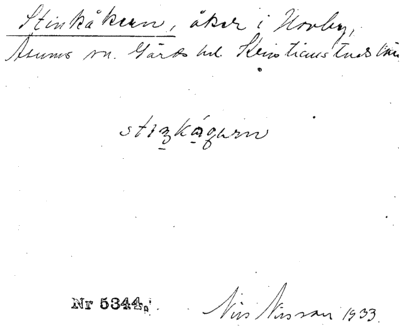 Stinkåkern, åker i Norby,
Åsums sn. Gärds hd Kristianstads län
Nr 5344.
Nils Nilsson 1933.